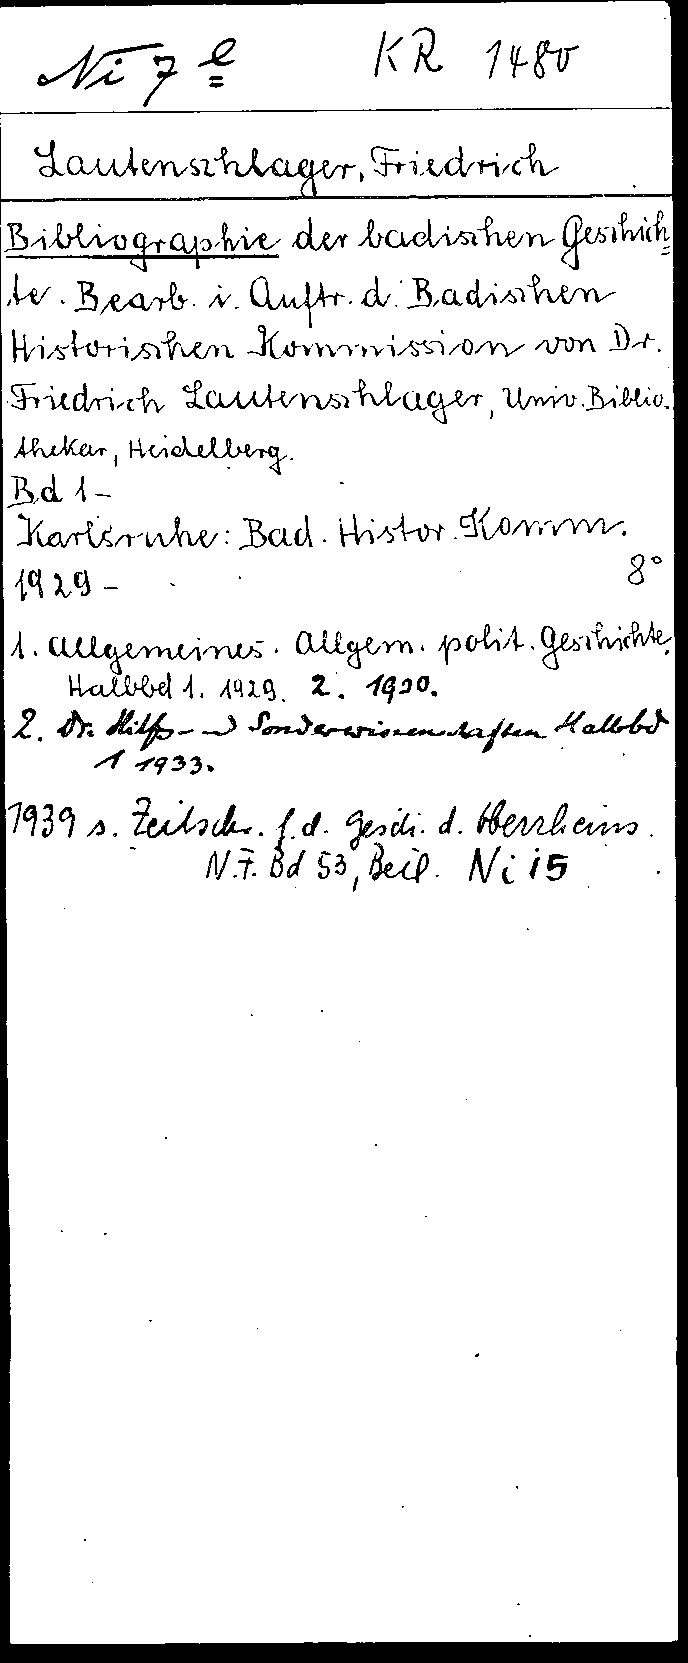 Ni 7 e KR 1480
Lautenschlager, Friedrich
Bibliographie der badischen Geschich=
te. Bearb. i. Auftr. d. Badischen
Historischen Kommission von Dr.
Friedrich Lautenschlager, Univ. Biblio.
thekar, Heidelberg.
Bd 1-
Karlsruhe: Bad. Histor. Komm.
1929 - 8°
1. Allgemeines. Allgem. polit. Geschichte.
Halbbd 1. 1929. 2. 1930.
2. Hilfs- Sonderwissenschaften Halbbd
1 1933.
1939 s. Zeitschr. f. d. Gesch. d. Oberrheins.
N.F. Bd 53, Beil. Ni 15